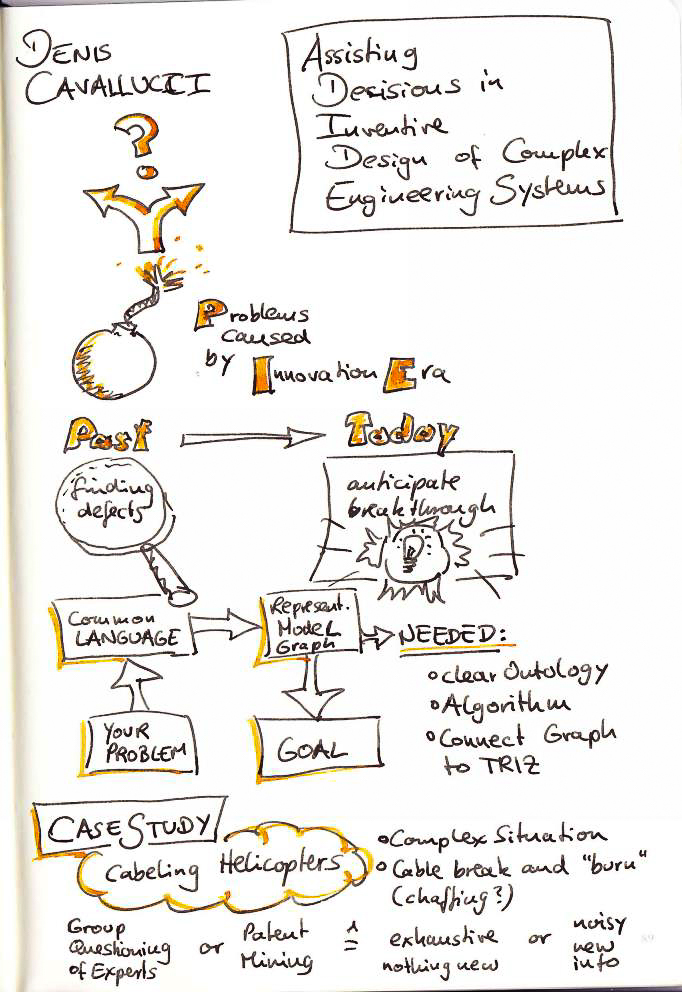 DENIS
CAVALLUCCI
Assisting
Decisions in
Inventive
Design of Complex
Engineering Systems
?
Problems
caused
by Innovation Era
Past
Today
finding
defects
anticipate
breakthrough
Common
LANGUAGE
Represent.
Model
Graph
NEEDED:
clear Ontology
Algorithm
Connect Graph
to TRIZ
YOUR
PROBLEM
GOAL
CASE STUDY
Cabeling Helicopters
Complex Situation
Cable break and "burn"
(chaffing?)
Group
Questioning
of Experts
or
Patent
Mining
≙
exhaustive
nothing new
or
noisy
new
info